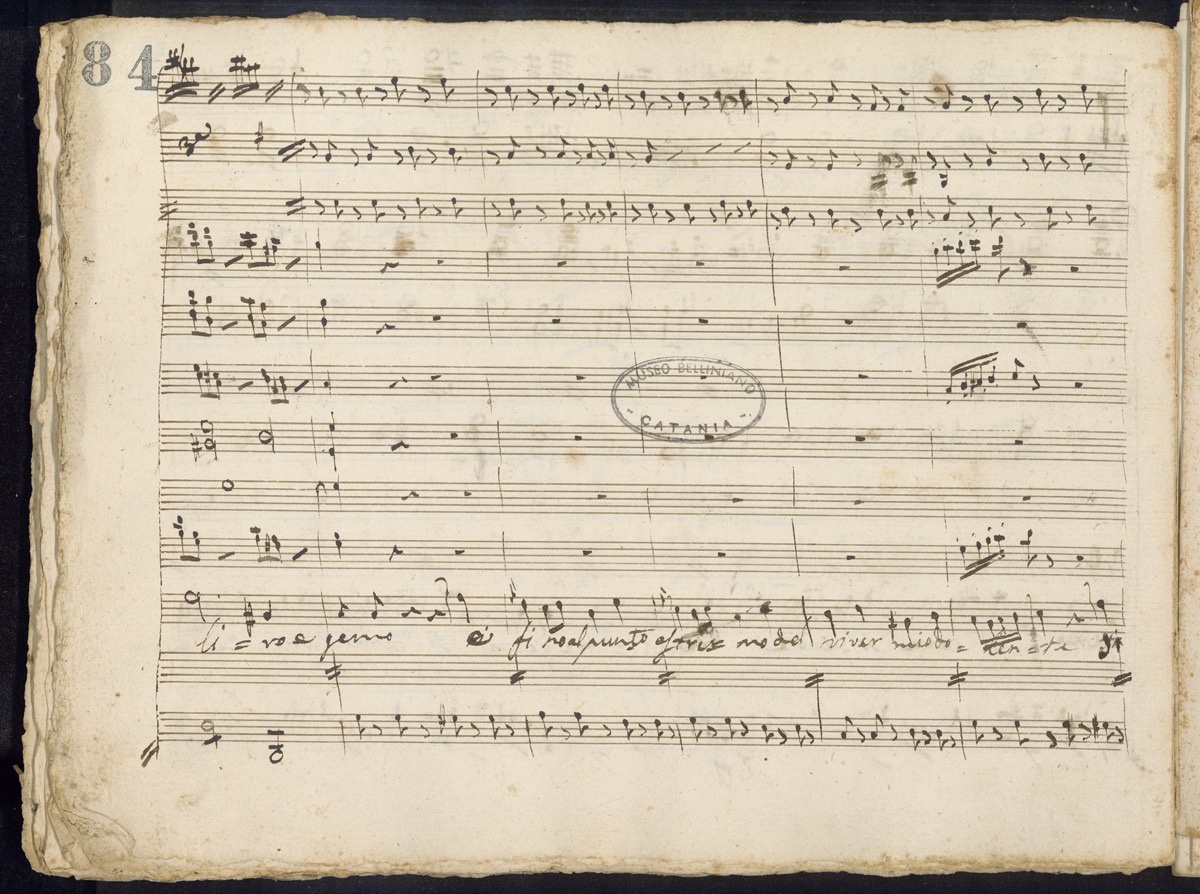 84
MUSEO BELLINIANO
- CATANIA -
li = ro e gemo e fi no al punto estre= mo del viver mio do =